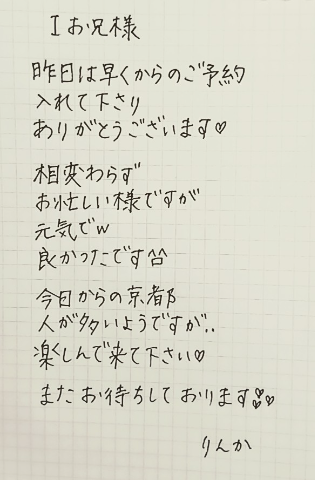 Iお兄様
昨日は早くからのご予約
入れて下さり
ありがとうございます♡
相変わらず
お忙しい様ですが
元気でw
良かったです^^
今日からの京都
人が多いようですが..
楽しんで来て下さい♡
またお待ちしております♡♡♡
りんか